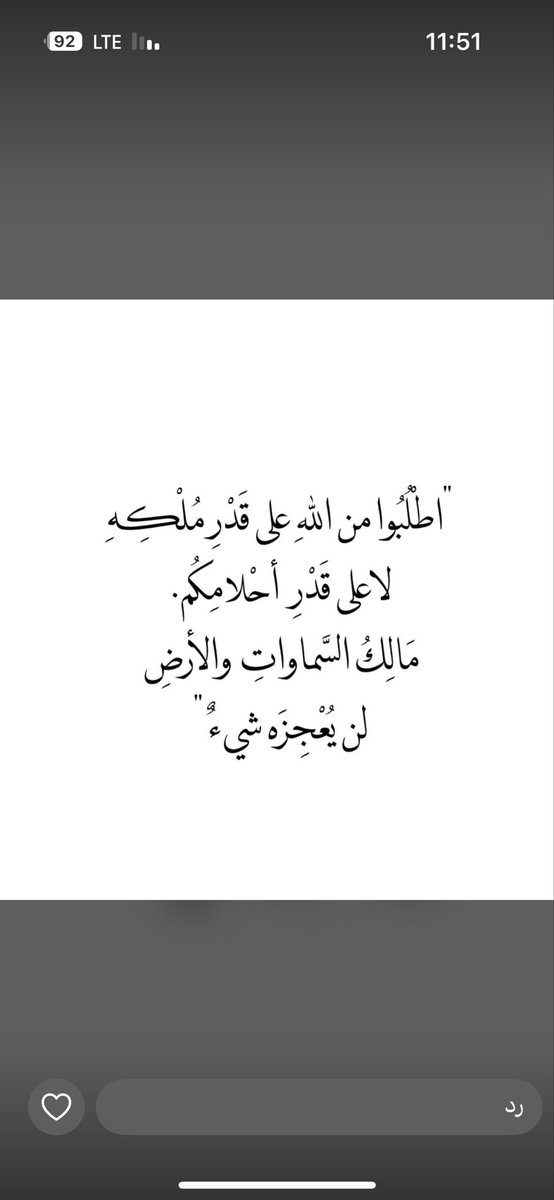 92 LTE 11:51
"اطْلُبُوا من اللهِ على قَدْرِ مُلْكِهِ
لا على قَدْرِ أحْلامِكُم.
مَالِكُ السَّماواتِ والأرضِ
لن يُعْجِزَه شيءٌ"
رد